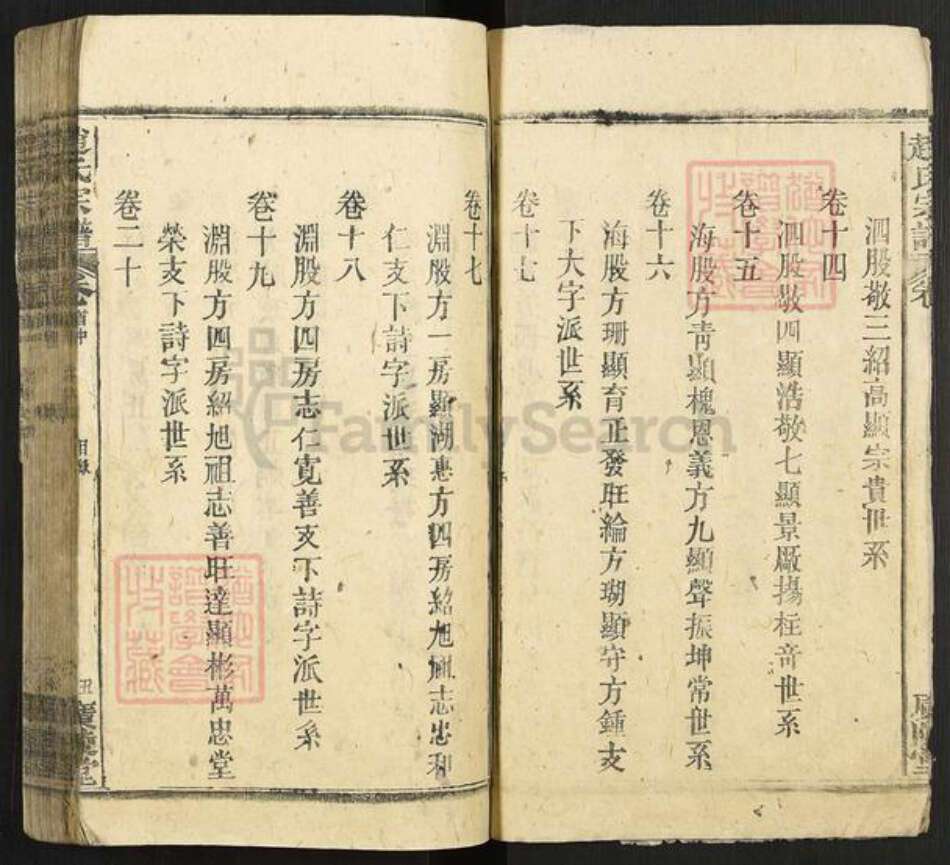 趙氏宗譜 卷
泗股敬三紹高顯宗貴世系
卷十四
泗股敬四顯浩敬七顯景敬揚柱奇世系
卷十五
海股方青顯槐恩義方九顯聲振坤常世系
卷十六
海股方珊顯育正發旺綸方瑚顯守方鍾支
下大字派世系
卷十七
卷十七
淵股方一房顯湖惠方四房紹旭祖志忠和
仁支下詩字派世系
卷十八
淵股方四房志仁寬善支下詩字派世系
卷十九
淵股方四房紹旭祖志善旺達顯彬萬忠堂
榮支下詩字派世系
卷二十
趙氏宗譜 卷首中
目錄
丑
FamilySearch